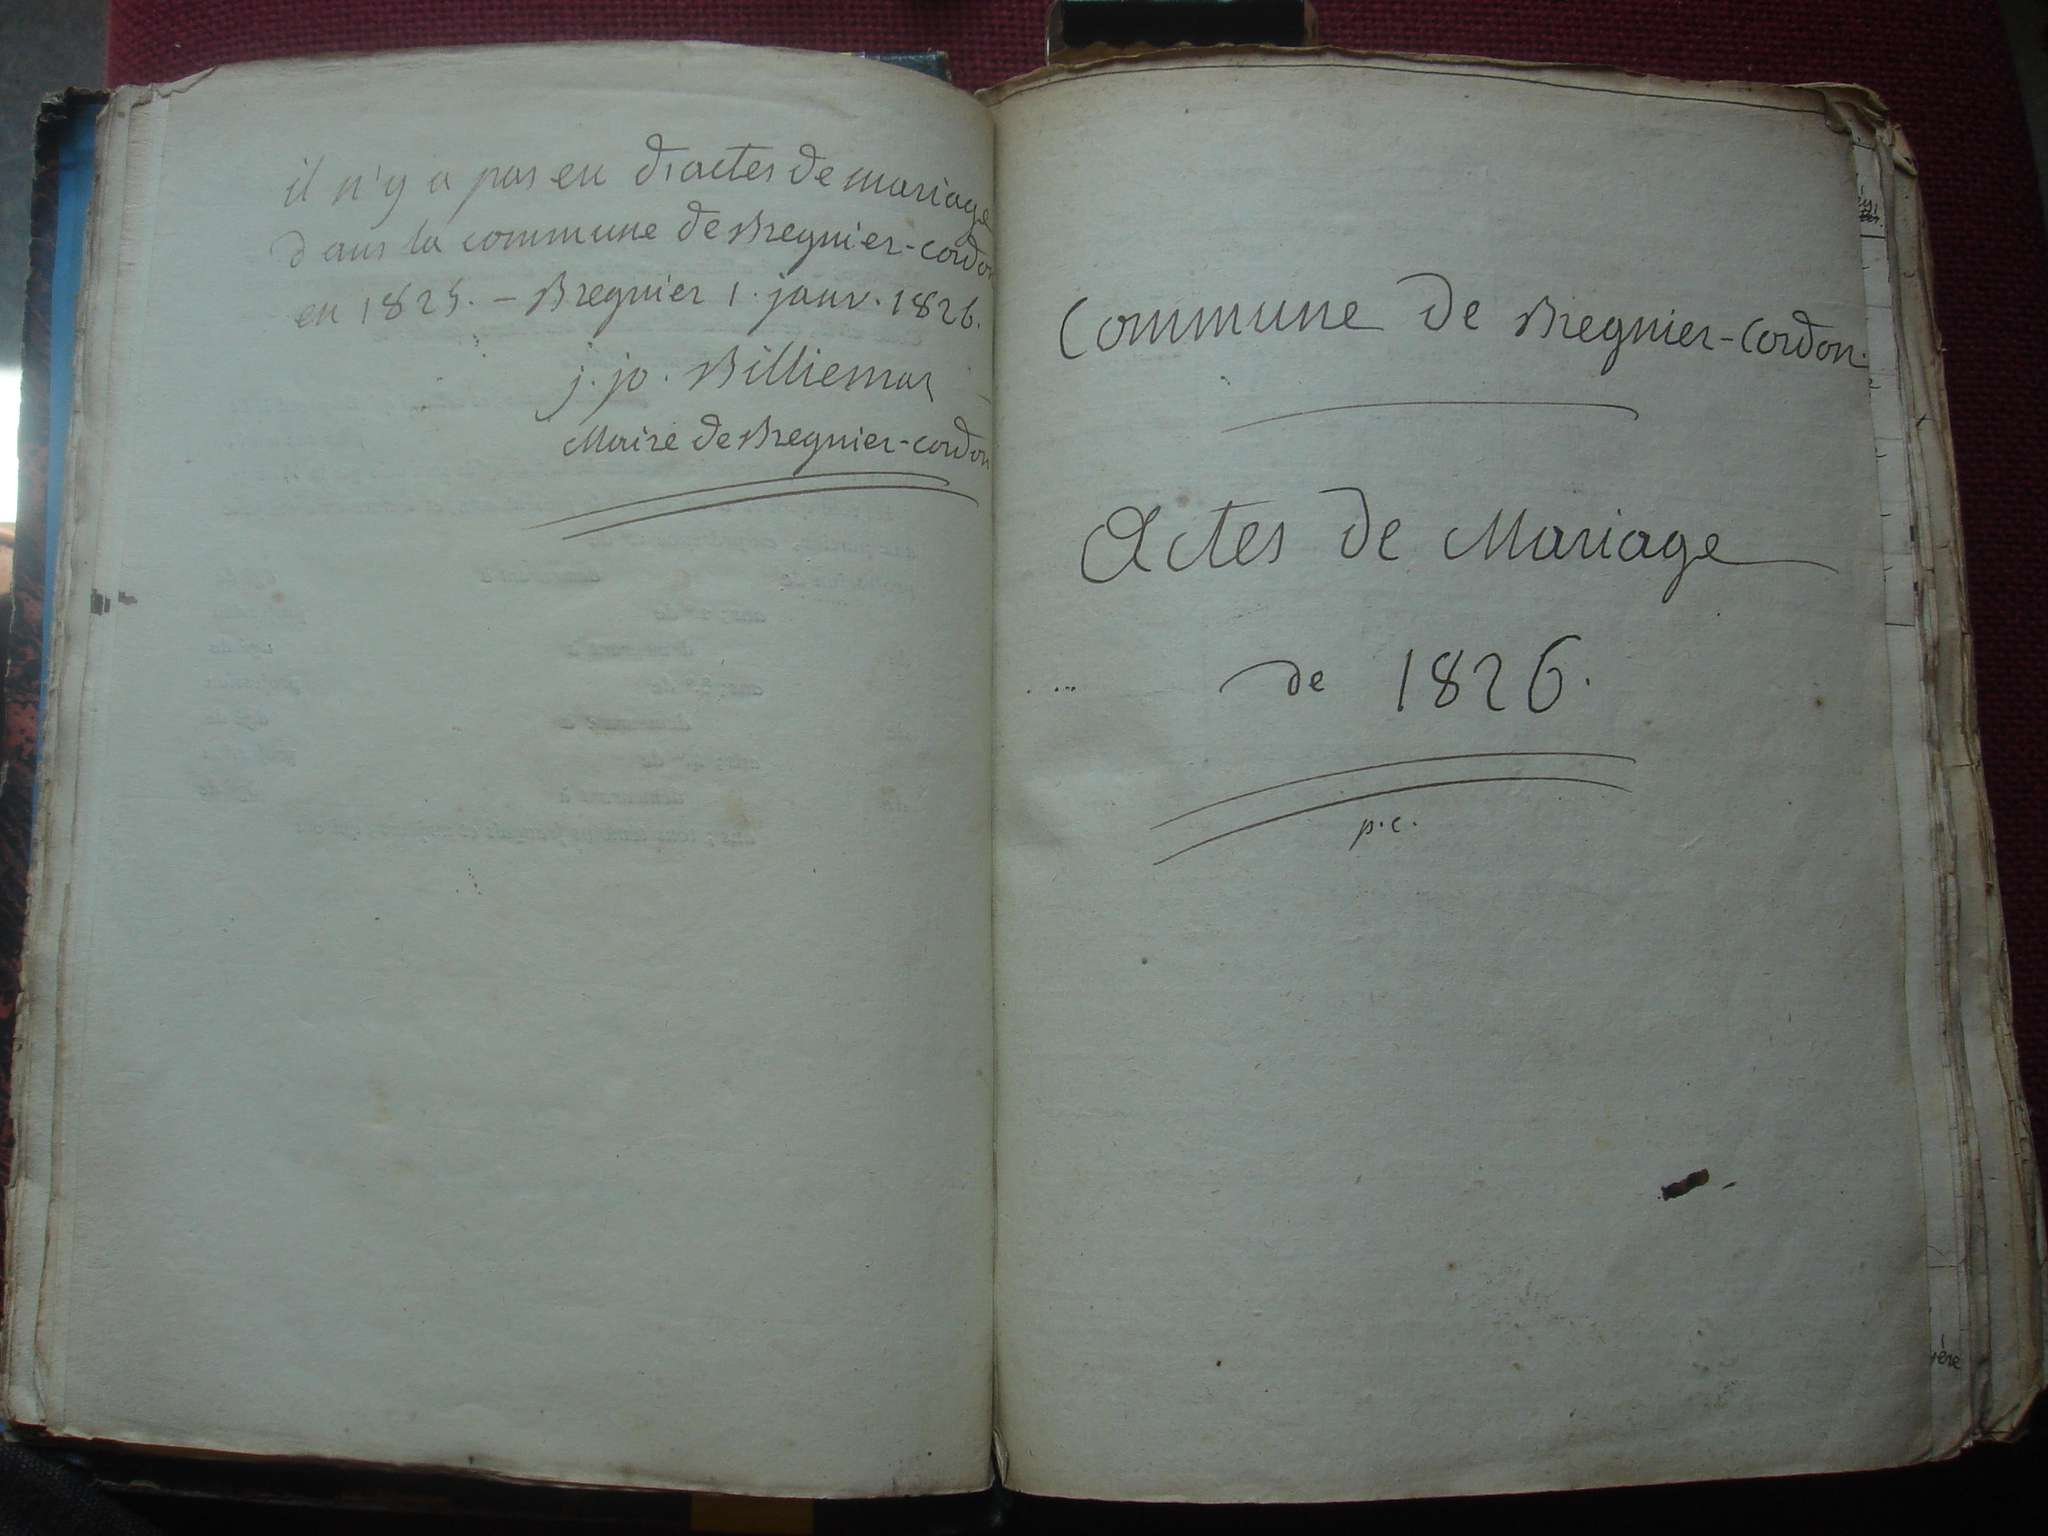 il n'y a pas eu d'actes de mariage
dans la commune de Bregnier-cordon
en 1825. – Bregnier 1. janv. 1826.
j. jo. Billiemaz
Maire de Bregnier-cordon
Commune de Bregnier-Cordon.
Actes de Mariage
de 1826.
p.c.